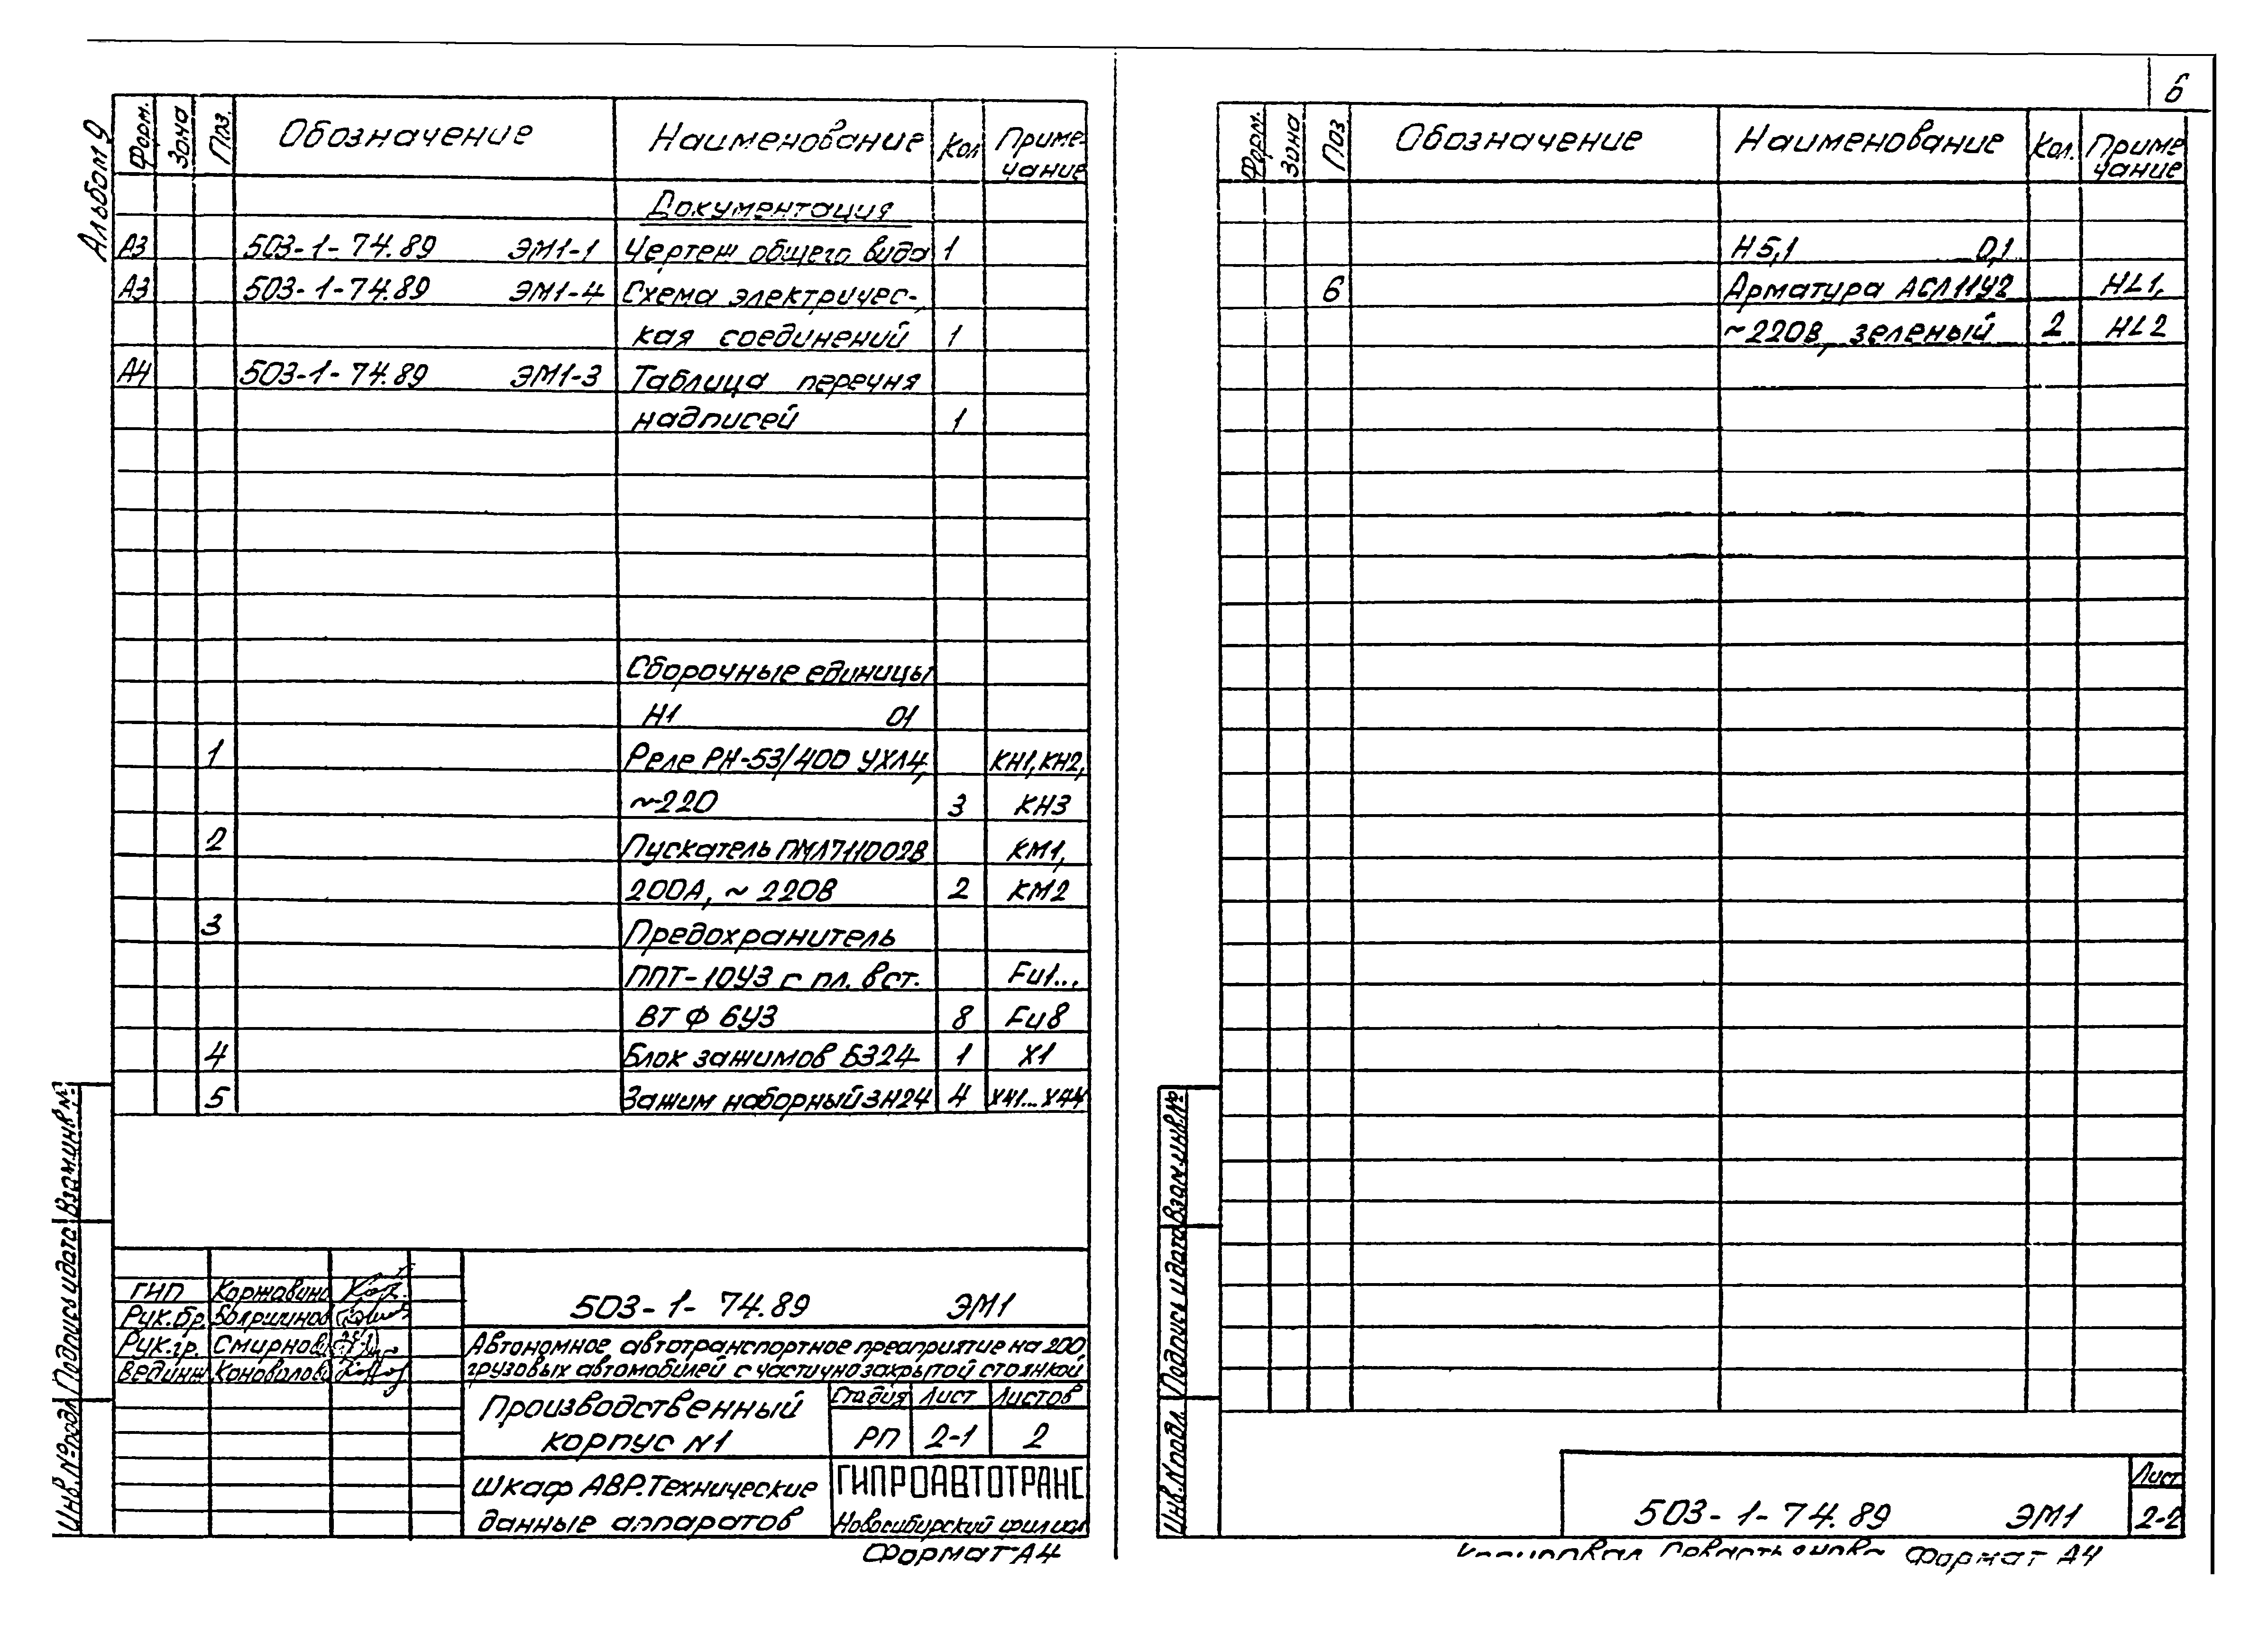 6
Альбом 9
Форм. Зона Поз. Обозначение Наименование Кол Приме-
чание
Документация
А3 503-1-74.89 ЭМ1-1 Чертеж общего вида 1
А3 503-1-74.89 ЭМ1-4 Схема электричес-
кая соединений 1
А4 503-1-74.89 ЭМ1-3 Таблица перечня
надписей 1
Сборочные единицы
Н1 01
1 Реле РН-53/400 УХЛ4, КН1, КН2,
~220 3 КН3
2 Пускатель ПМЛ711002В КМ1,
200А, ~ 220В 2 КМ2
3 Предохранитель
ППТ-10У3 с пл. вст. Fu1...
ВТФ 6У3 8 Fu8
4 Блок зажимов Б324 1 Х1
5 Зажим наборный ЗН24 4 Х41...Х44
Взам.инв.№
Подпись и дата
Инв.№подл
ГИП Коржавин
Рук.бр. Бояршинов
Рук.гр. Смирнов
Вед.инж Коновалов
503-1-74.89 ЭМ1
Автономное автотранспортное предприятие на 200
грузовых автомобилей с частично закрытой стоянкой
Производственный
корпус №1
Стадия Лист Листов
РП 2-1 2
Шкаф АВР. Технические
данные аппаратов
ГИПРОАВТОТРАНС
Новосибирский филиал
Формат А4
Форм. Зона Поз Обозначение Наименование Кол. Приме
чание
Н5,1 0,1
6 Арматура АСЛ11У2 HL1,
~220В, зеленый 2 HL2
Взам.инв.№
Подпись и дата
Инв.№подл.
503-1-74.89 ЭМ1
Лист
2-2
Копировал Формат А4